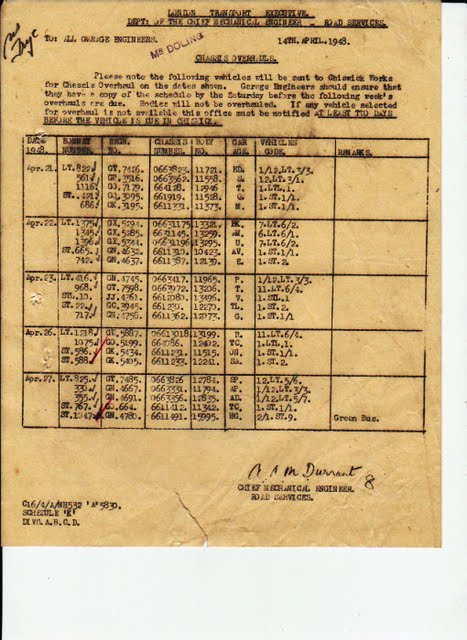 LONDON TRANSPORT EXECUTIVE.
DEPT: OF THE CHIEF MECHANICAL ENGINEER - ROAD SERVICES.
TO: ALL GARAGE ENGINEERS. 14TH.APRIL.1948.
MR DOLING
CHASSIS OVERHAULS.
Please note the following vehicles will be sent to Chiswick Works
for Chassis Overhaul on the dates shown. Garage Engineers should ensure that
they have a copy of the schedule by the Saturday before the following week's
overhauls are due. Bodies will not be overhauled. If any vehicle selected
for overhaul is not available this office must be notified AT LEAST TWO DAYS
BEFORE THE VEHICLE IS DUE IN CHISWICK.
DATE 1948. BONNET NUMBER. REGN. NO. CHASSIS NUMBER. BODY NO. CAR AGE. VEHICLES CODE. REMARKS.
Apr.21. LT. 822 GT.7426. 0663823. 11721. HD. 1/12.LT.3/3.
561 GP.3516. 0663562. 11558. 12.LT.3/1.
1116 GO.7179. 664128. 12946 T. 1.LTL.1.
ST. GO.3095 661919. 11528. 1.ST.1/1.
686 GK.3195. 6611331. 11373. M. 1.ST.1/1.
Apr.22. LT.1375 GX.5294. 06631175 7.LT.6/2.
1345 GX.5285. 6631145. 13259. 6.LT.6/1.
1396 GX.5344. 06631196 13295. U. 7.LT.6/2.
ST.665 GN.4632 6611310. 10423 AV. 1.ST.1/1.
742 GN.4637. 6611387. 12139. E. 1.ST.2.
Apr.23. LT.416 GN.4745. 0663417. 11965. F. 1/12.LT.3/3.
968 GT.7598. 0663972. 13206. T. 11.LT.6/4.
STL.10. JJ.4361. 6612080. 13496. V. 1.STL.1
ST. GO.3945 661230. 12270. TL. 1.ST.2.
717 GN.4758. 6611362. 12073. G. 1.ST.1/1.
Apr.26. LT.1218 GU.5887. 06631018 13199. R. 11.LT.6/4.
1075 GO.5199. 664086. 12402. TC. 1.LTL.1.
ST.586 GK.5434. 6611231. 11515. ON. 1.ST.1/1.
ST.588 GK.5405. 6611233. 12241. SA. 1.ST.2.
Apr.27. LT.825 GT.7485. 0663826 12784. SP. 12.LT.5/6.
330 GN.4667. 0663331. 11794. AP. 1/12.LT.3/3.
355 GN.4691. 0663356. 12835. AD. 1/12.LT.5/7.
ST.767 G.664. 6611412. 11342. TC. 1.ST.1/1.
ST.1047 GN.4780. 6611491. 15995. HG. 2/1.ST.9. Green Bus.
A. A M Durrant
CHIEF MECHANICAL ENGINEER. 8
ROAD SERVICES.
C16/4/A/MH532 'A'5830.
SCHEDULE 'K'
DIVS.A.B.C.D.